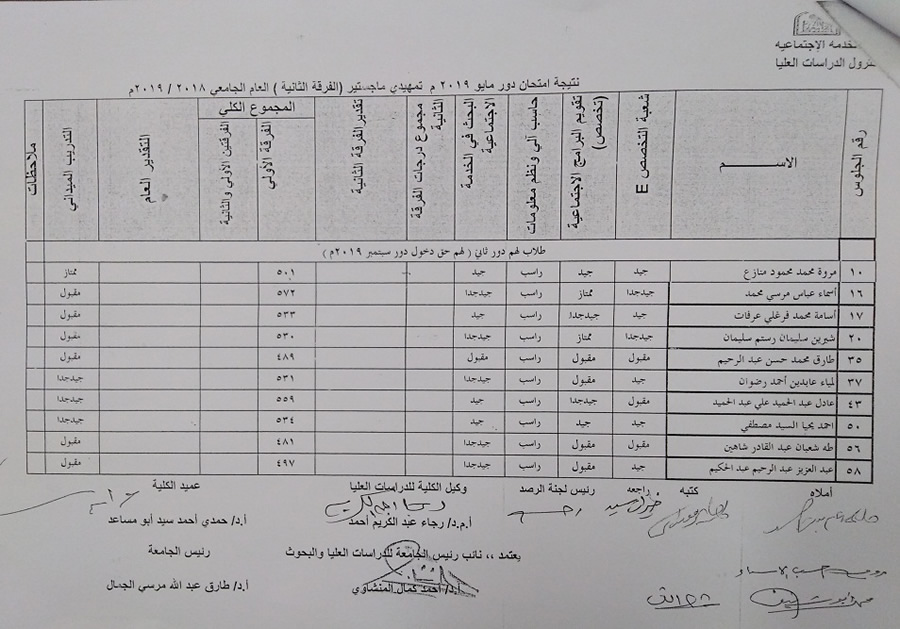 الخدمه الإجتماعيه
كنترول الدراسات العليا
نتيجة امتحان دور مايو ٢٠١٩ م تمهيدي ماجستير (الفرقة الثانية ) العام الجامعي ٢٠١٨ / ٢٠١٩م
رقم الجلوس الاســـم شعبة التخصص E تقويم البرامج الاجتماعية (تخصص) حاسب آلي ونظم معلومات البحث في الخدمة الاجتماعية مجموع درجات الفرقة الثانية تقدير الفرقة الثانية المجموع الكلي الفرقة الأولي الفرقتين الأولي والثانية التقدير العام التدريب الميداني ملاحظات
طلاب لهم دور ثاني ( لهم حق دخول دور سبتمبر ٢٠١٩م )
١٠ مروة محمد محمود منازع جيد جيد راسب جيد ٥٠١ ممتاز
١٦ أسماء عباس مرسي محمد جيدجدا ممتاز راسب جيدجدا ٥٧٢ مقبول
١٧ أسامة محمد قرغلي عرفات جيد جيدجدا راسب جيد ٥٣٣ مقبول
٢٠ شيرين سليمان رستم سليمان جيدجدا ممتاز راسب جيدجدا ٥٣٠ مقبول
٣٥ طارق محمد حسن عبد الرحيم مقبول مقبول راسب مقبول ٤٨٩ مقبول
٣٧ لمياء عابدين أحمد رضوان جيد مقبول راسب جيدجدا ٥٣١ جيدجدا
٤٣ عادل عبد الحميد علي عبد الحميد مقبول جيدجدا راسب جيد ٥٥٩ جيدجدا
٥٠ احمد يحيا السيد مصطفي جيد جيد راسب جيد ٥٣٤ جيدجدا
٥٦ طه شعبان عبد القادر شاهين مقبول مقبول راسب جيدجدا ٤٨١ مقبول
٥٨ عبد العزيز عبد الرحيم عبد الحكيم جيد مقبول راسب جيدجدا ٤٩٧ مقبول
أملاه كتبه راجعه رئيس لجنة الرصد وكيل الكلية للدراسات العليا عميد الكلية
أ.م.د/ رجاء عبد الكريم أحمد أ.د/ حمدي أحمد سيد أبو مساعد
يعتمد ،، نائب رئيس الجامعة للدراسات العليا والبحوث رئيس الجامعة
أ.د/ أحمد كمال المنشاوي أ.د/ طارق عبد الله مرسي الجمال